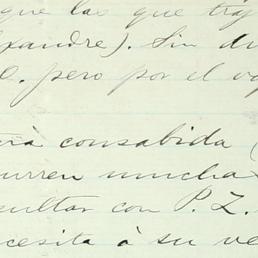 que las que traj
xandre). Sin du
O. pero por el va
rá consabida (
urren mucha
sultar con P. Z.
ecesita à su ve